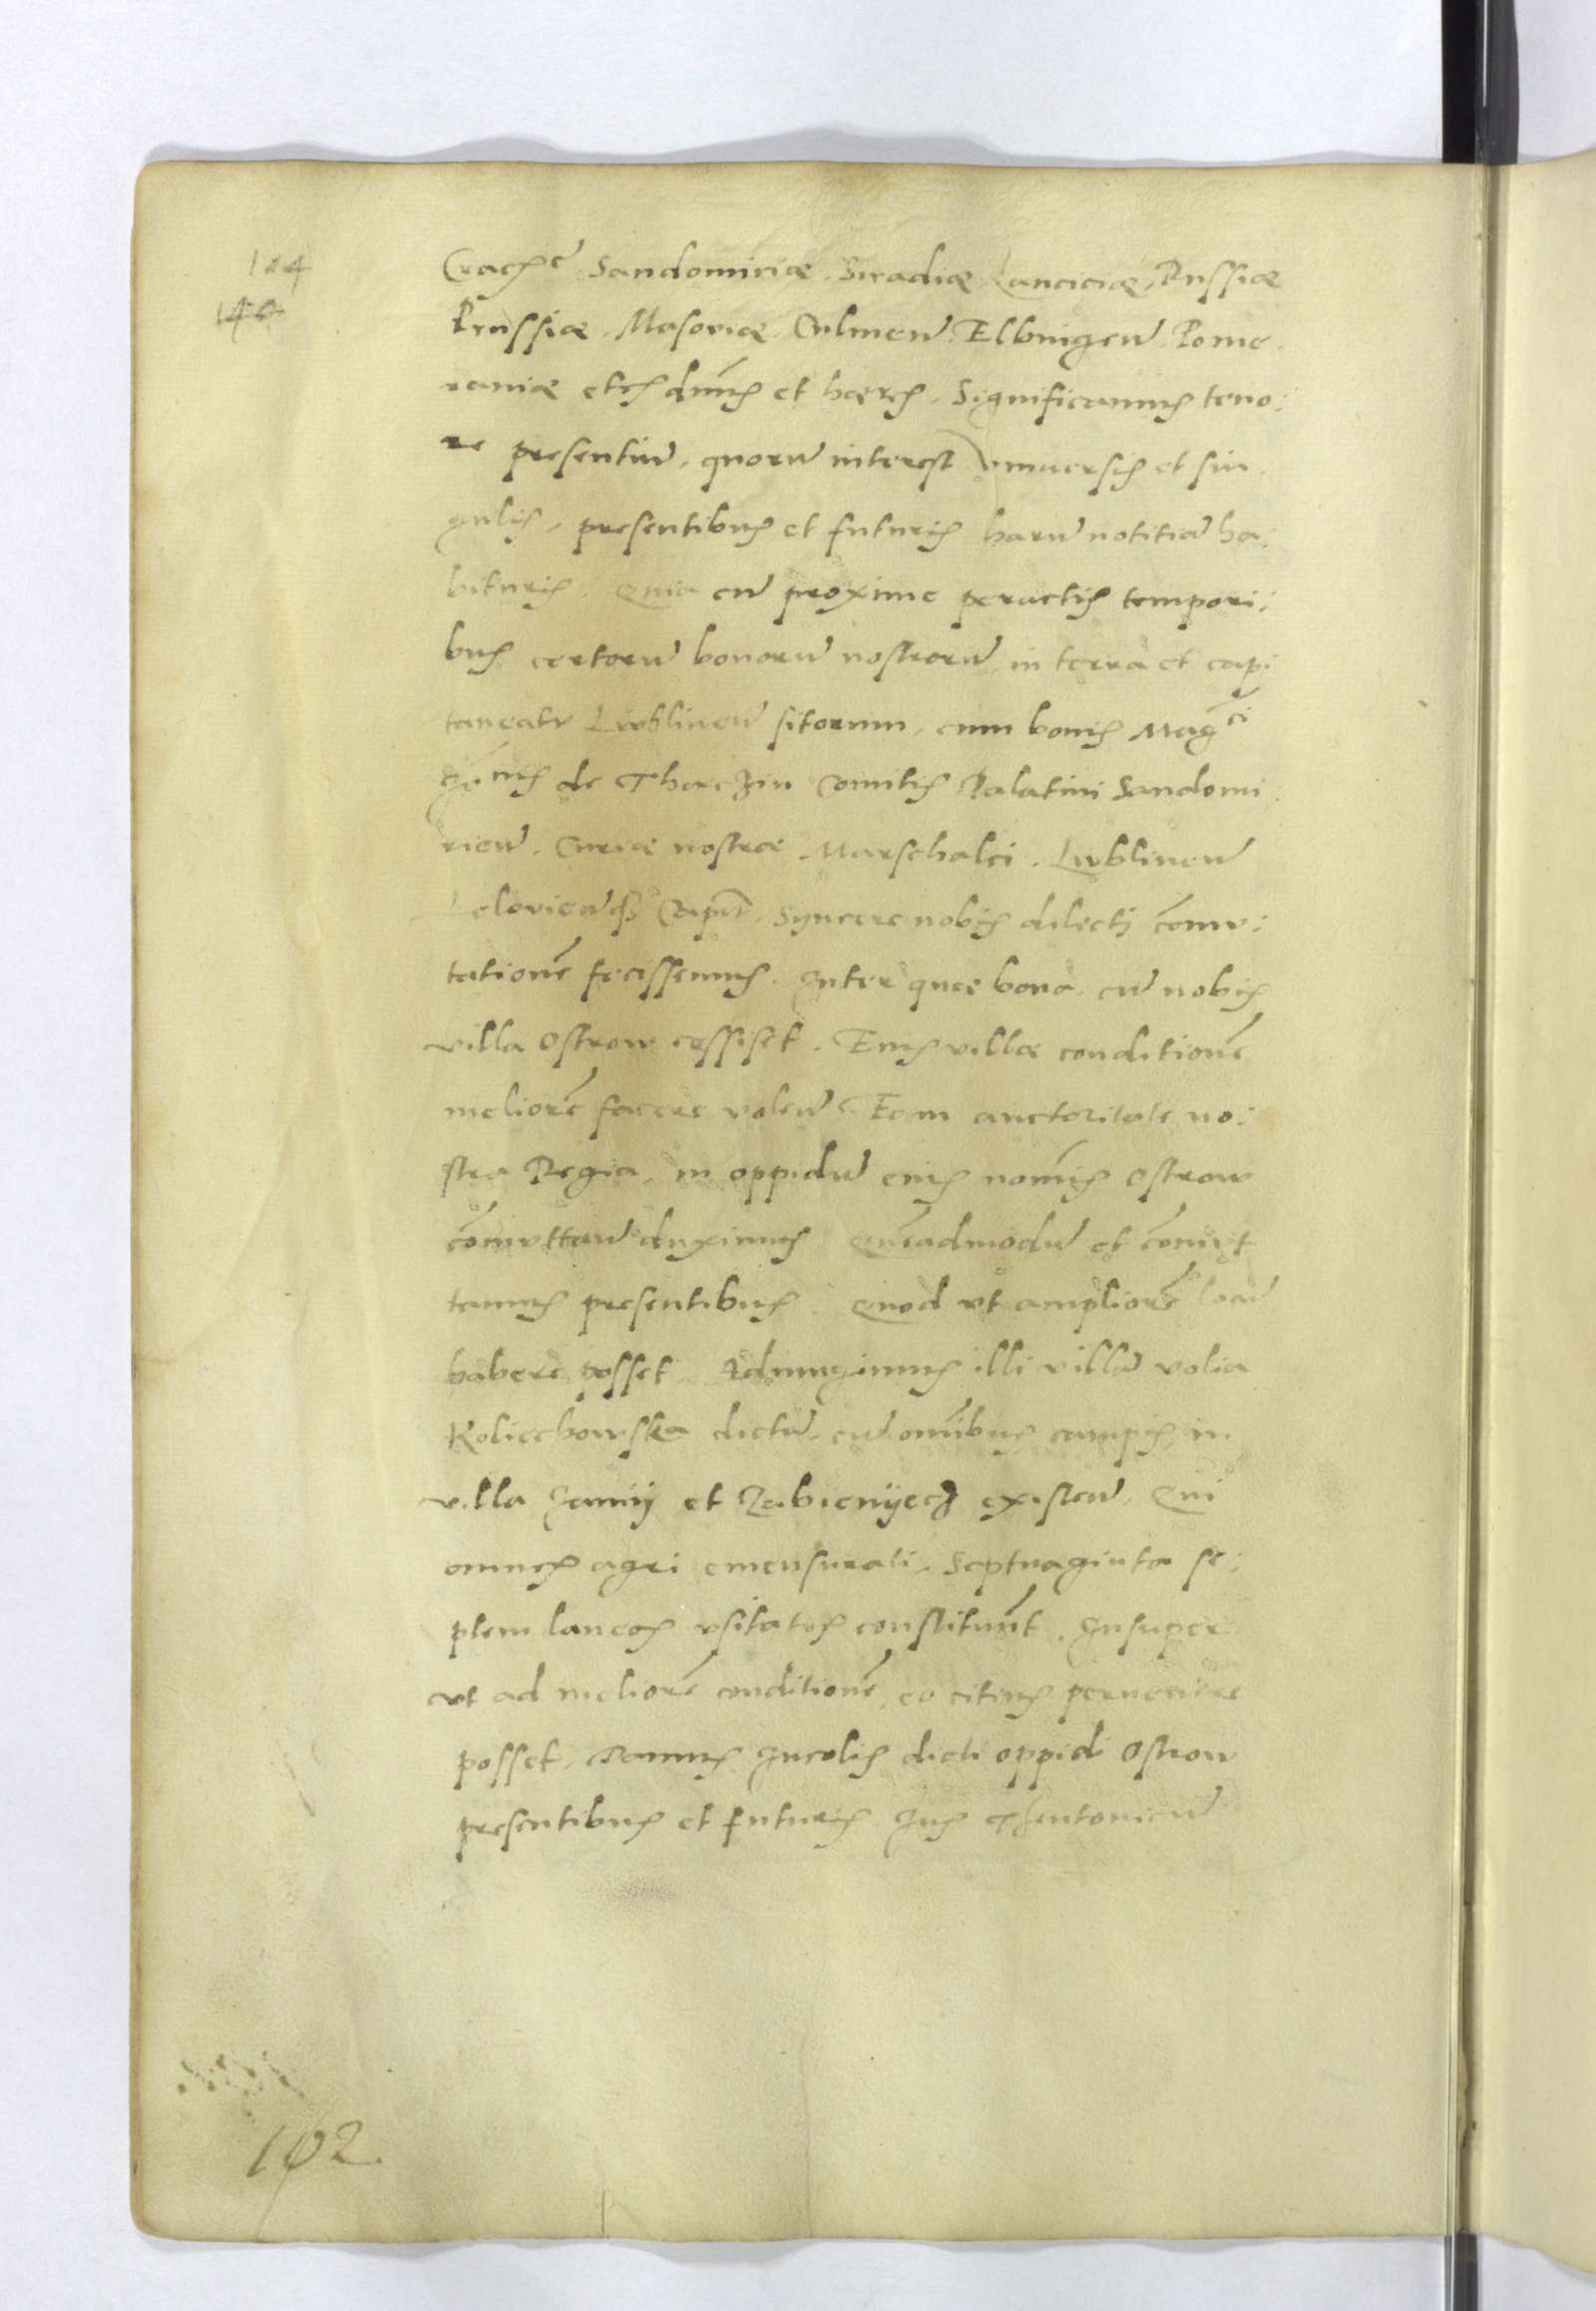 104
140
Crac͠e Sandomiriæ. Siradiæ Lanciciæ, Russiæ
Prussiæ. Masoviæ. Culmen̄. Elbingen̄. Pome.
raniæ etc̃ dn̄us et hæres. Significamus teno:
re presentiū, quorū interest vniuersis et sin.
gulis, presentibus et futuris harū notitiā ha:
bituris. Quia cū proxime peractis tempori:
bus certorū bonorū nostrorū in terra et capi
taneatu Lublinen̄ sitorum, cum bonis Mag̃ci
Jo̅nis de Tharczin Comitis Palatini Sandomi.
rien̄. Curiæ nostræ Marschalci. Lublinen̄
Lelovien̄qз Capn̄i. Syncere nobis dilecti com̄u:
tationē fecissemus. Inter quæ bona, cū nobis
villa Ostrow cessiset. Eius villæ conditionē
meliorē facere volen̄ Eam auctoritate no:
stra Regia, in oppidū eius nom̄is Ostrow
com̄uttan̄ duximus Quēadmodū et com̄ut
tamus presentibus. Quod vt ampliorē locū
habere posset. Adiungimus illi villā Volia
Koliechowska dictā, cū om̄ibus campis in
villa Jamij et Zabienijecz existen̄. Qui
omnes agri emensurati, Septuaginta se:
ptem laneos vsitatos constituūt. Insuper
vt ad meliorē conditionē eo citius pervenire
posset, Damus Incolis dicti oppidi Ostrow
presentibus et futuris Jus Theutonicū
102.